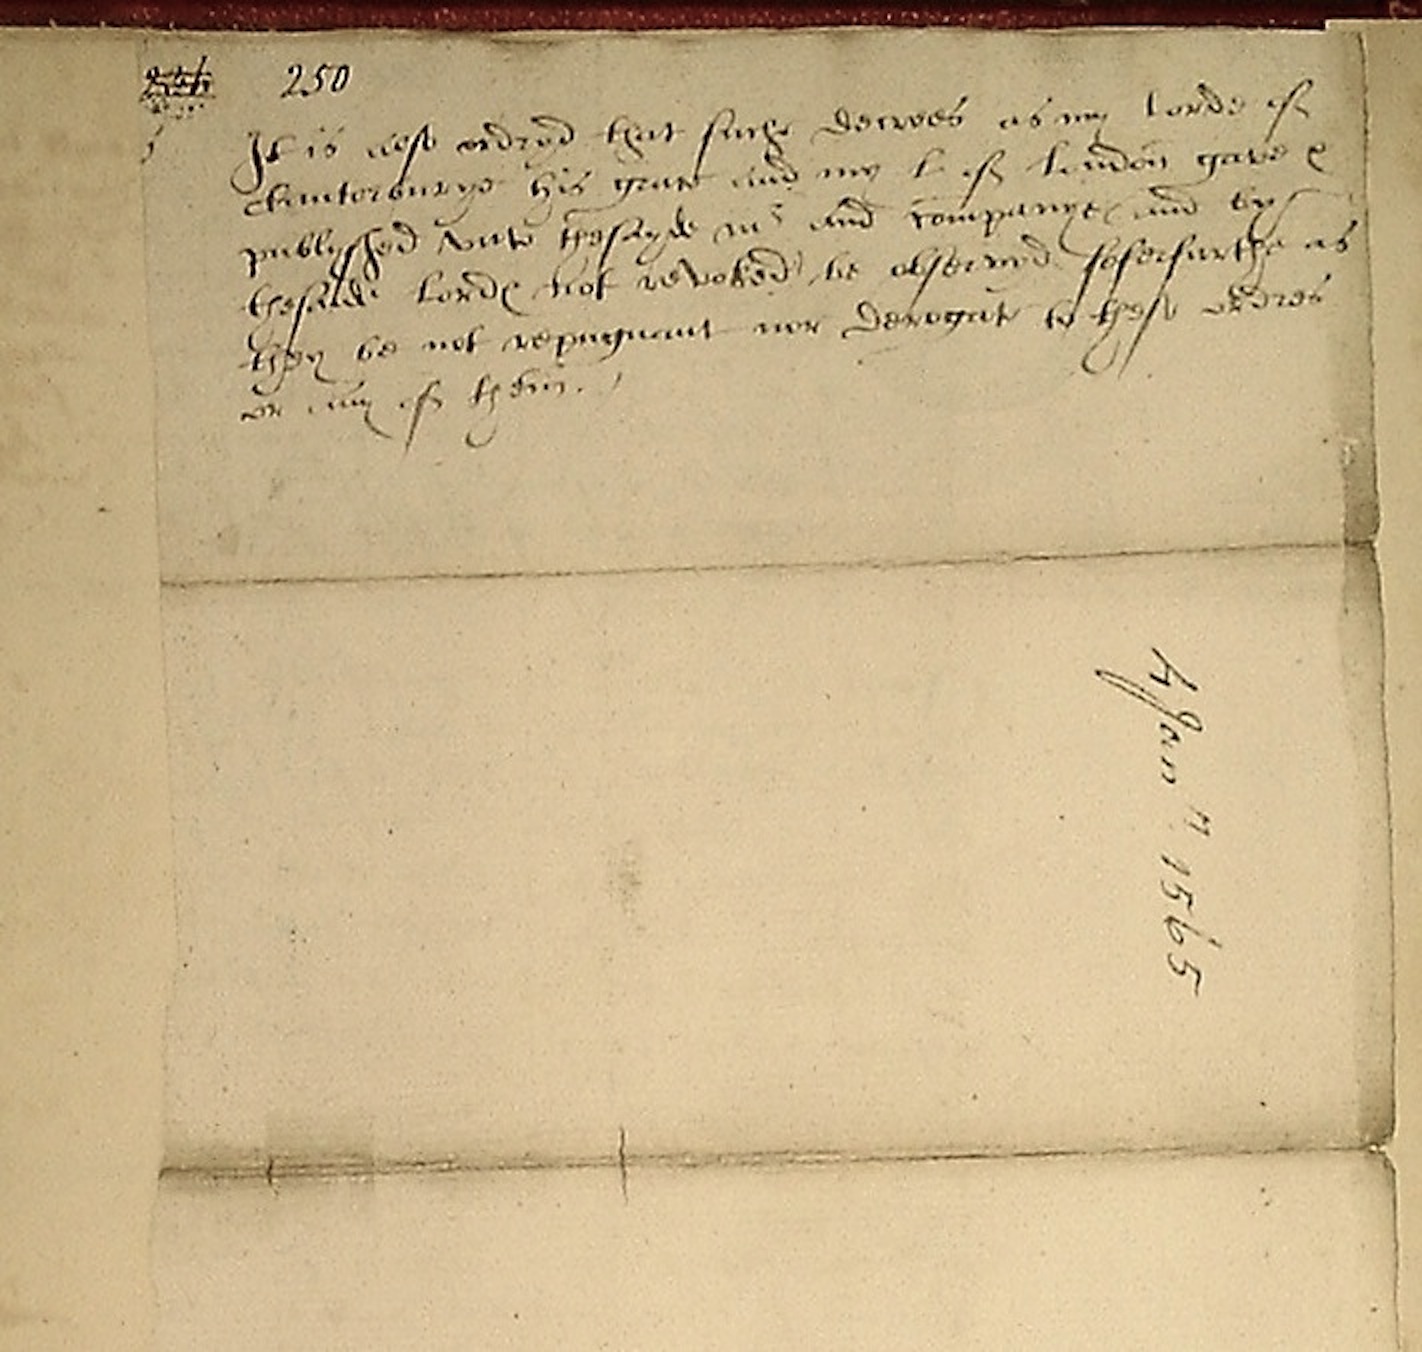 250
It is also ordryd that suche decrees as my lorde of
Canterburye his grace and my l of london gave &
publysshed unto thesayde mr and companye and by
thesaide lordes not revoked be observyd soferfurthe as
they be not repugnaunt nor derogate to these ordres
or any of them.
Jan 1565